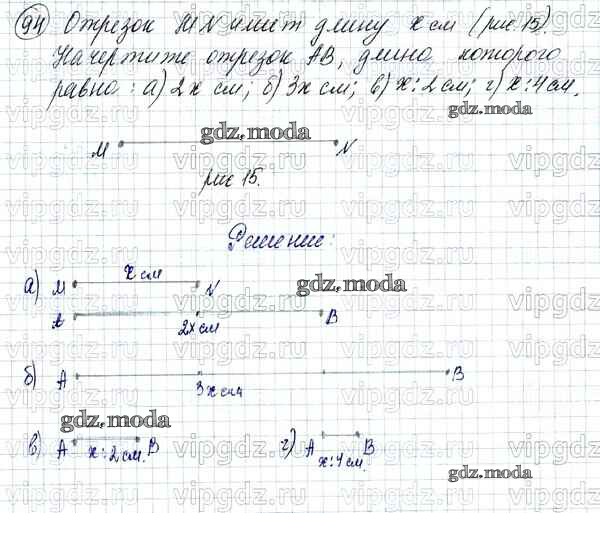 94 Отрезок MN имеет длину x см (рис. 15).
Начертите отрезок AB, длина которого
равна: а) 2x см; б) 3x см; в) x:2 см; г) x:4 см.
gdz.moda
gdz.moda
M N
рис 15.
Решение:
а) M x см N
gdz.moda
A 2x см B
б) A 3x см B
gdz.moda
в) A x:2 см. B г) A x:4 см. B
gdz.moda
vipgdz.ru